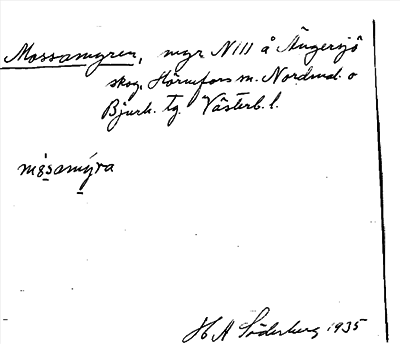 Mossamyren, myr N III å Ängersjö
skog, Hörnefors m. Nordmal. o
Bjurh. tg. Västerb. l.
H A Söderberg 1935